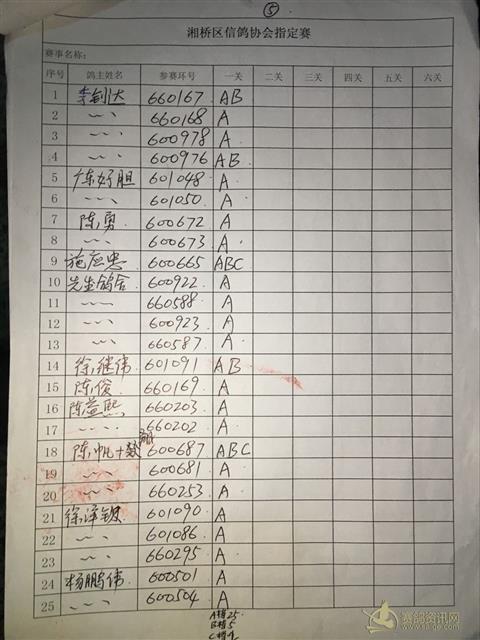 ⑤
湘桥区信鸽协会指定赛
赛事名称：
序号 鸽主姓名 参赛环号 一关 二关 三关 四关 五关 六关
1 李钊达 660167 AB
2 〃 660168 A
3 〃 600978 A
4 〃 600976 AB
5 广东好胆 601048 A
6 〃 601050 A
7 陈勇 600672 A
8 〃 600673 A
9 施应忠 600665 ABC
10 先生鸽舍 600922 A
11 〃 660588 A
12 〃 600923 A
13 〃 660587 A
14 徐继伟 601091 AB
15 陈俊 660169 A
16 陈益熙 660203 A
17 〃 660202 A
18 陈帆+ 600687 ABC
19 〃 600681 A
20 〃 660253 A
21 徐泽钡 601090 A
22 〃 601086 A
23 〃 660295 A
24 杨鹏伟 600501 A
25 〃 600504 A
A榜25
B榜5
赛鸽资讯网